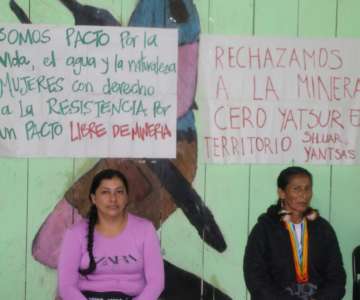 SOMOS PACTO Por la
vida, el agua y la naturaleza
MUJERES con derecho
a LA RESISTENCIA Por
un PACTO LIBRE DE MINERIA
RECHAZAMOS
A LA MINERA
CERO YATSUR E
TERRITORIO SHUAR
YANTSAS
ZARA